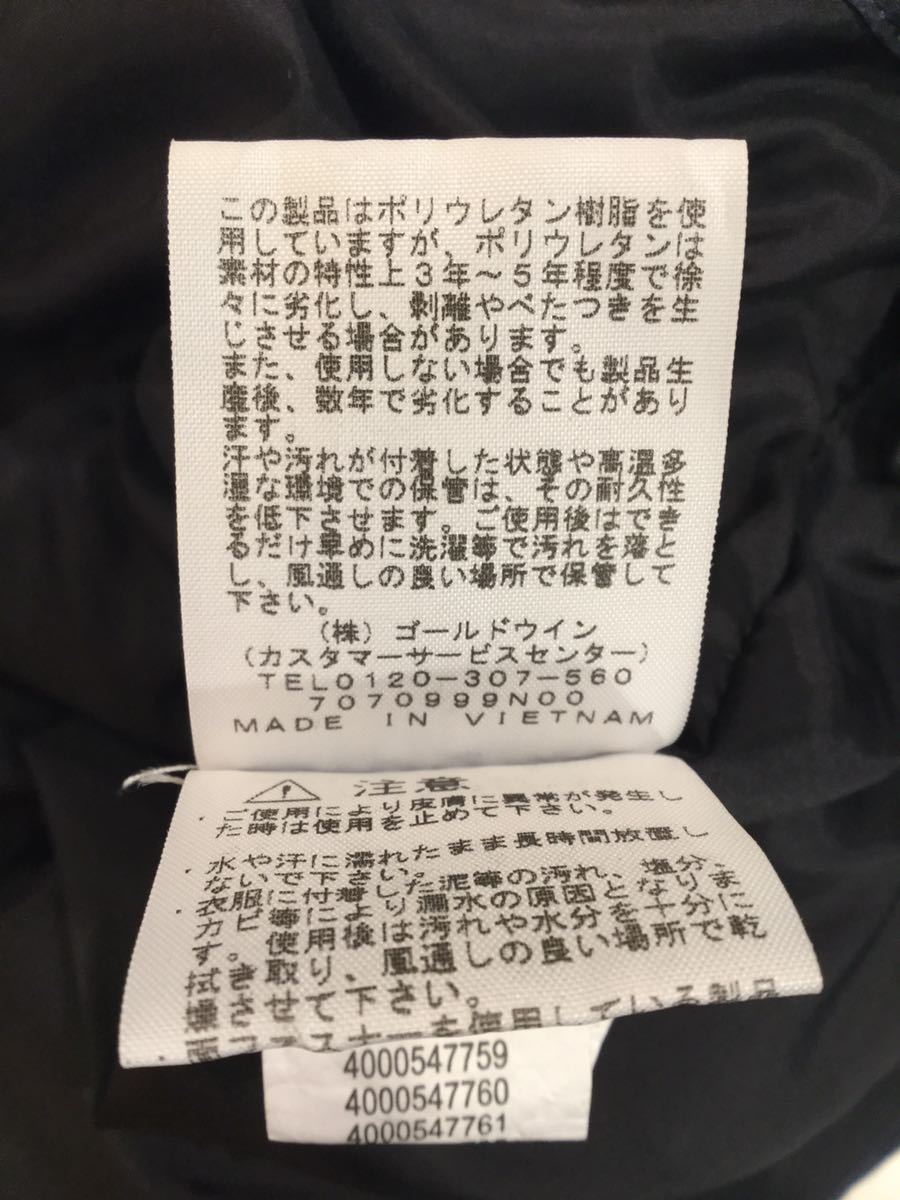 この製品はポリウレタン樹脂を使
用していますが、ポリウレタンは
素材の特性上3年〜5年程度で徐
々に劣化し、剥離やべたつきを生
じさせる場合があります。
また、使用しない場合でも製品生
産後、数年で劣化することがあり
ます。
汗や汚れが付着した状態や高温多
湿な環境での保管は、その耐久性
を低下させます。ご使用後はできる
だけ早めに洗濯等で汚れを落と
し、風通しの良い場所で保管して
下さい。
(株)ゴールドウイン
(カスタマーサービスセンター)
TEL0120-307-560
7070999N00
MADE IN VIETNAM
注意
ご使用により皮膚に異常が発生し
た時は使用を止めて下さい。
水や汗に濡れたまま長時間放置し
ないで下さい。
衣服に付着した泥等の汚れ、塩分、
カビ等により漏水の原因となりま
す。使用後は汚れや水分を十分に
拭き取り、風通しの良い場所で乾
燥させて下さい。
を使用している製品
4000547759
4000547760
4000547761